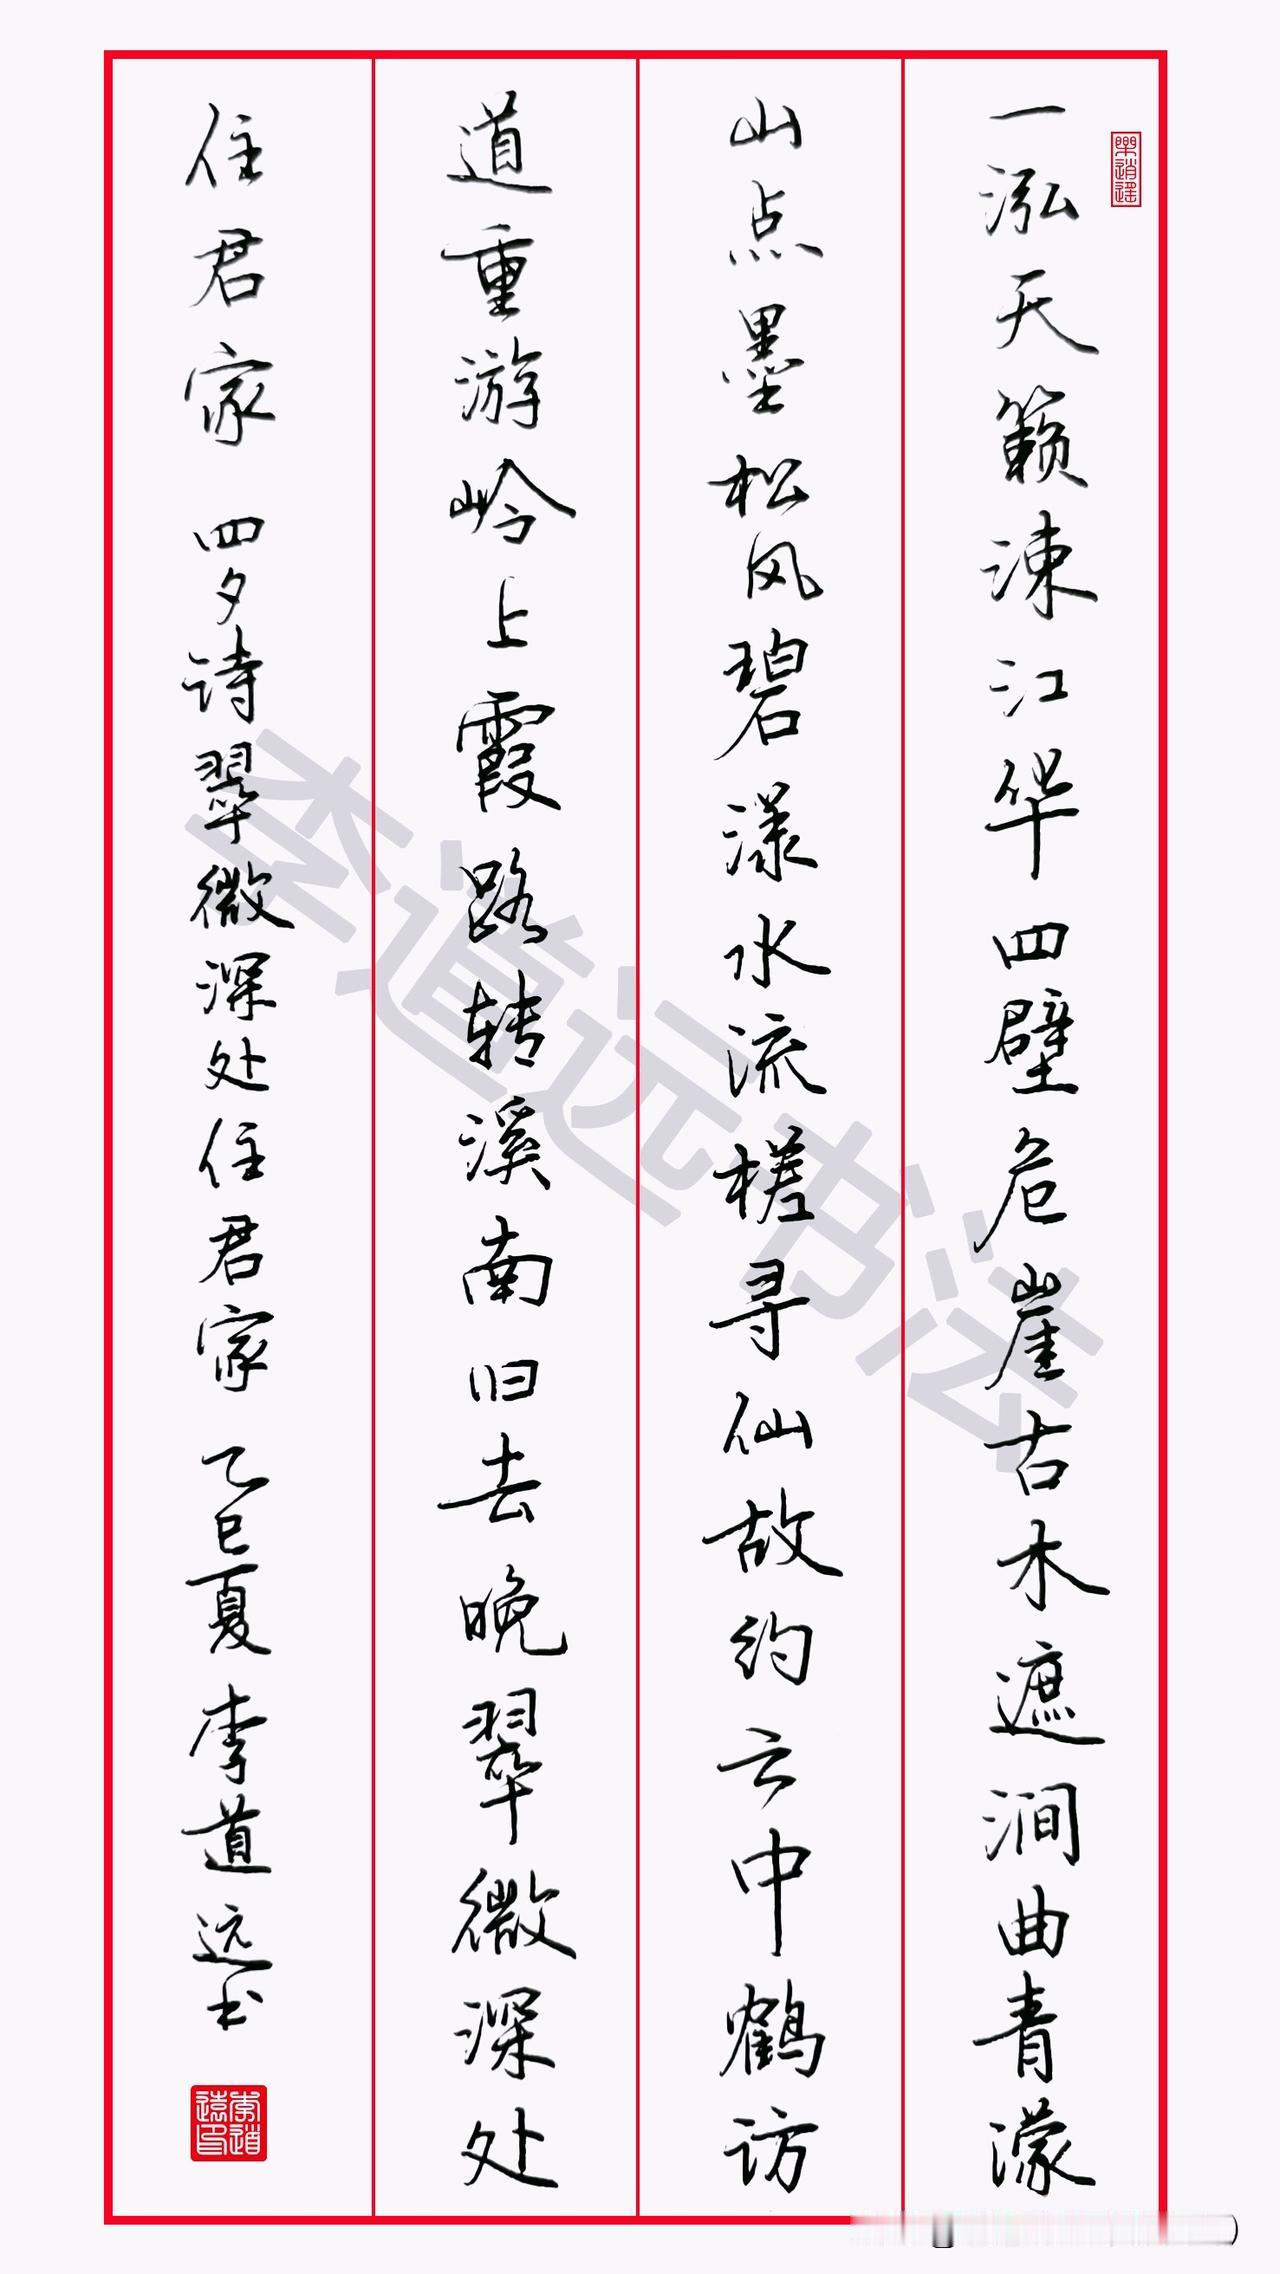 一泓天籁涑江华四壁危崖古木遮涧曲青濛
山点墨松风碧漾水流槎寻仙故约云中鹤访
道重游岭上霞路转溪南旧去晚翠微深处
住君家 四夕诗翠微深处住君家 乙巳夏李道远书
李道远印
李道远书法